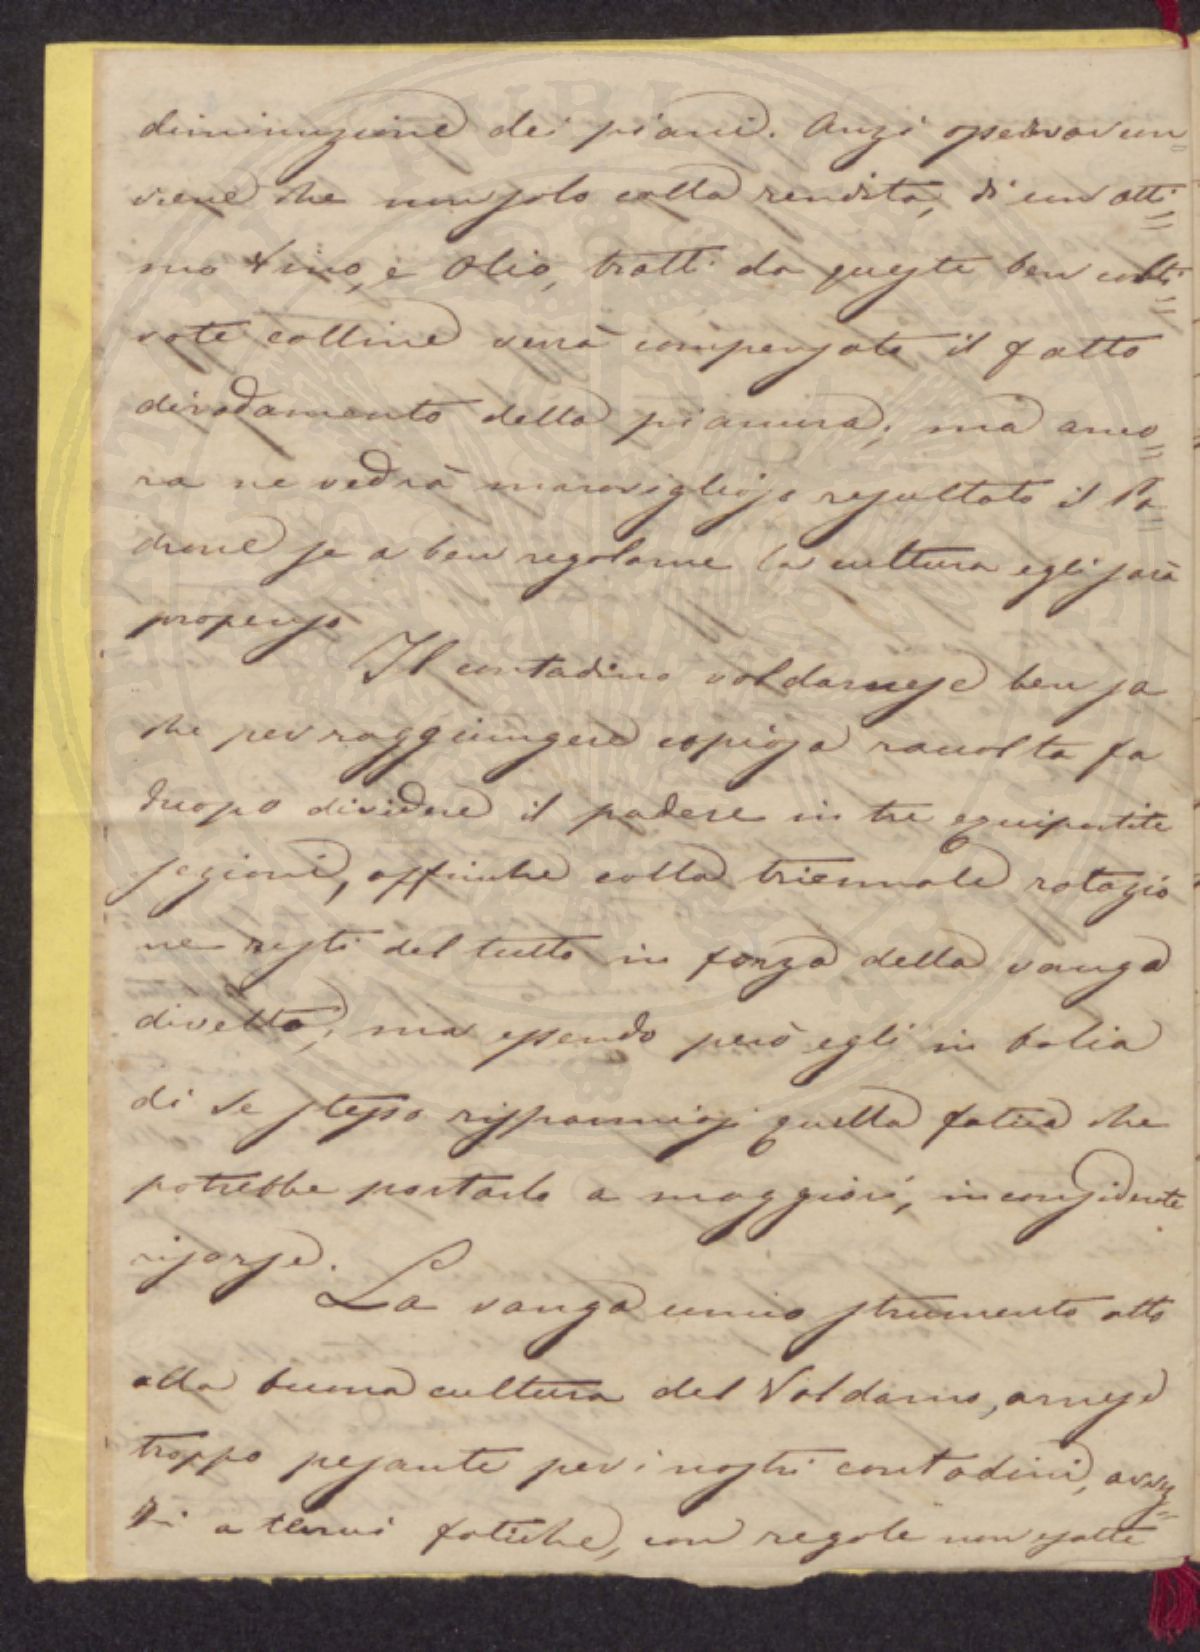 diminuzione dei piani. Anzi osservar con=
viene che non solo colla rendita, di un otti=
mo Vino, e Olio, tratti da queste ben colti=
vate colline verrà compensato il fatto
diradamento della pianura; ma anco=
ra ne vedrà maraviglioso resultato il Pa=
drone se a ben regolarne la cultura egli sarà
propenso.
Il contadino valdarnese ben sa
che per raggiungere copiosa raccolta fa
duopo dividere il podere in tre equipartite
sezioni, affinche colla triennale rotazio
ne resti del tutto in forza della vanga
divelto; ma essendo però egli in balia
di se stesso risparmiasi quella fatica che
potrebbe portarlo a maggiori, inconsiderate
risorse.
La vanga unico strumento atto
alla buona cultura del Valdarno, arnese
troppo pesante per i nostri contadini, avvez=
zi a tenui fatiche, con regole non esatte